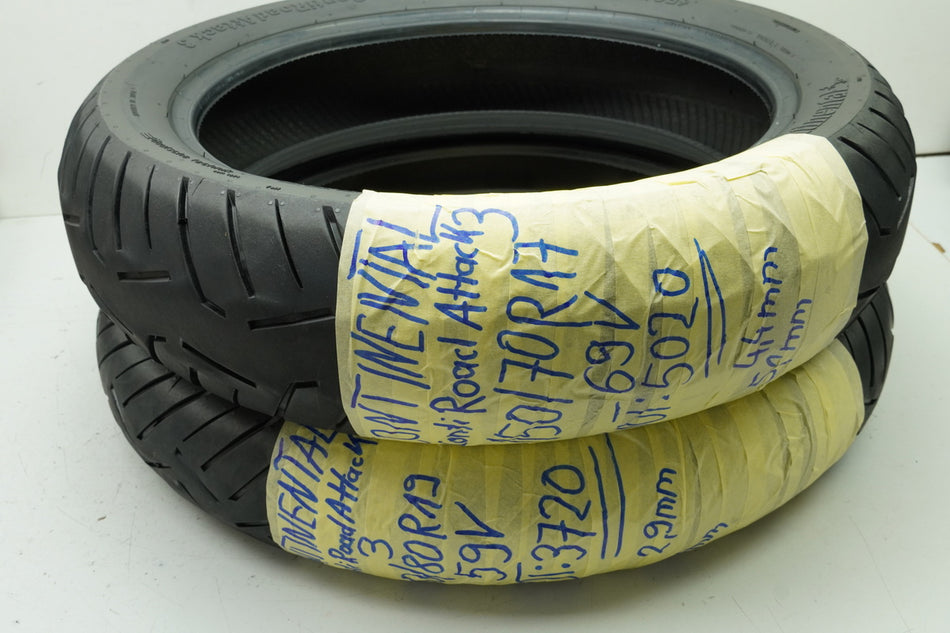 Conti Road Attack 3
Continental
ONTINENTAL
Conti Road Attack 3
150/70R17
69V
DOT:5020
4,4mm
5,1mm
TINENTAL
Road Attack
3
/80R19
59V
3720
2,9mm
mm